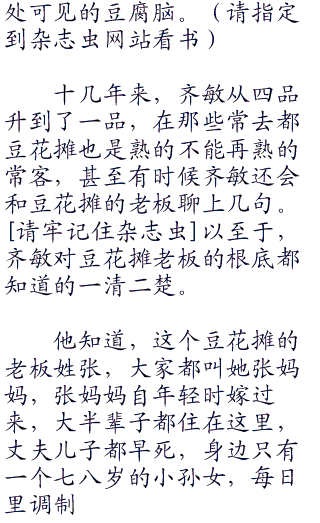 处可见的豆腐脑。（请指定
到杂志虫网站看书）
十几年来，齐敏从四品
升到了一品，在那些常去都
豆花摊也是熟的不能再熟的
常客，甚至有时候齐敏还会
和豆花摊的老板聊上几句。
[请牢记住杂志虫]以至于，
齐敏对豆花摊老板的根底都
知道的一清二楚。
他知道，这个豆花摊的
老板姓张，大家都叫她张妈
妈，张妈妈自年轻时嫁过
来，大半辈子都住在这里，
丈夫儿子都早死，身边只有
一个七八岁的小孙女，每日
里调制